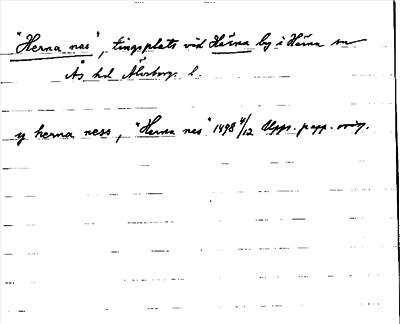 "Herna nas", tingsplats vid Härna by i Härna sn
Ås hd Älvsborgs l.
y herna ness, "Herna nes" 1498 4/12 Upps. papp. orig.